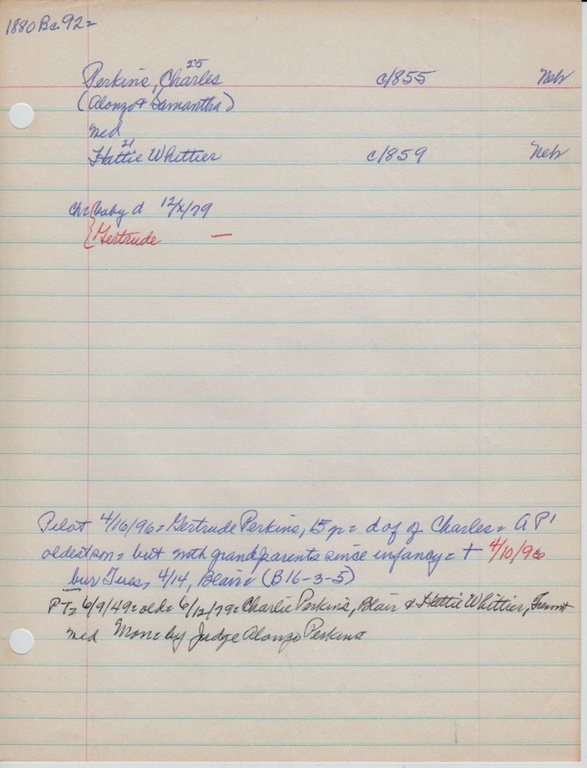 1880 Bc 92=
Perkins, Charles 25 c/855 Neb
(Alonzo & Samantha)
md
Hattie Whittier 21 c/859 Neb
Ch= baby d 12/x/79
Gertrude —
Pilot 4/16/96= Gertrude Perkins, 15 yr= d of g Charles= AP'
oldest son= but with grandparents since infancy= † 4/10/96
bur Tues, 4/14, Blair= (B16-3-5)
PT= 6/9/49= old= 6/12/79= Charlie Perkins, Blair & Hattie Whittier, Fremont
md Mon= by Judge Alonzo Perkins